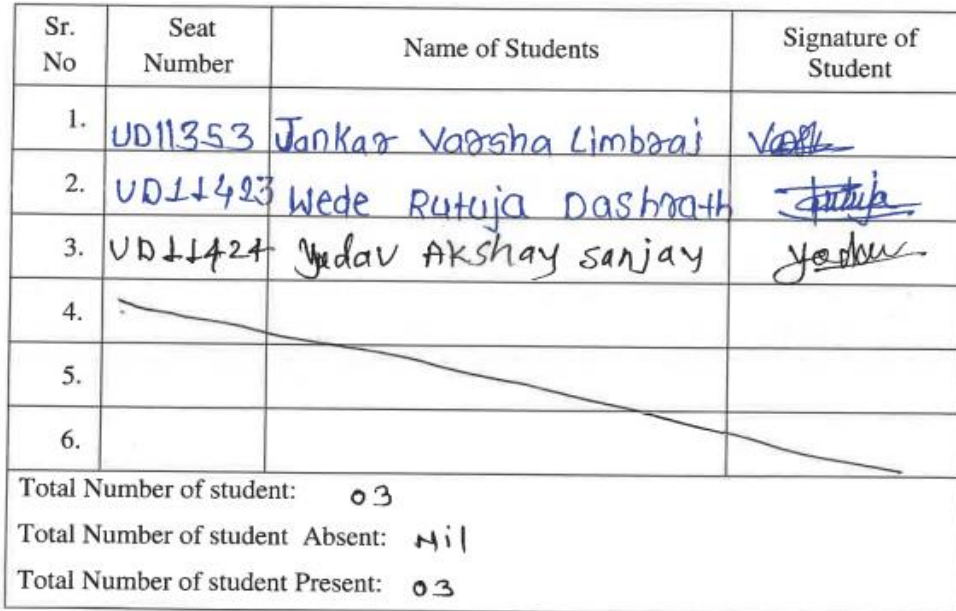 Sr. No Seat Number Name of Students Signature of Student
1. UD11353 Jankar Varsha Limbraj
2. UD11423 Wede Rutuja Dashrath Rutuja
3. UD11424 Yadav Akshay Sanjay
4.
5.
6.
Total Number of student: 03
Total Number of student Absent: Nil
Total Number of student Present: 03